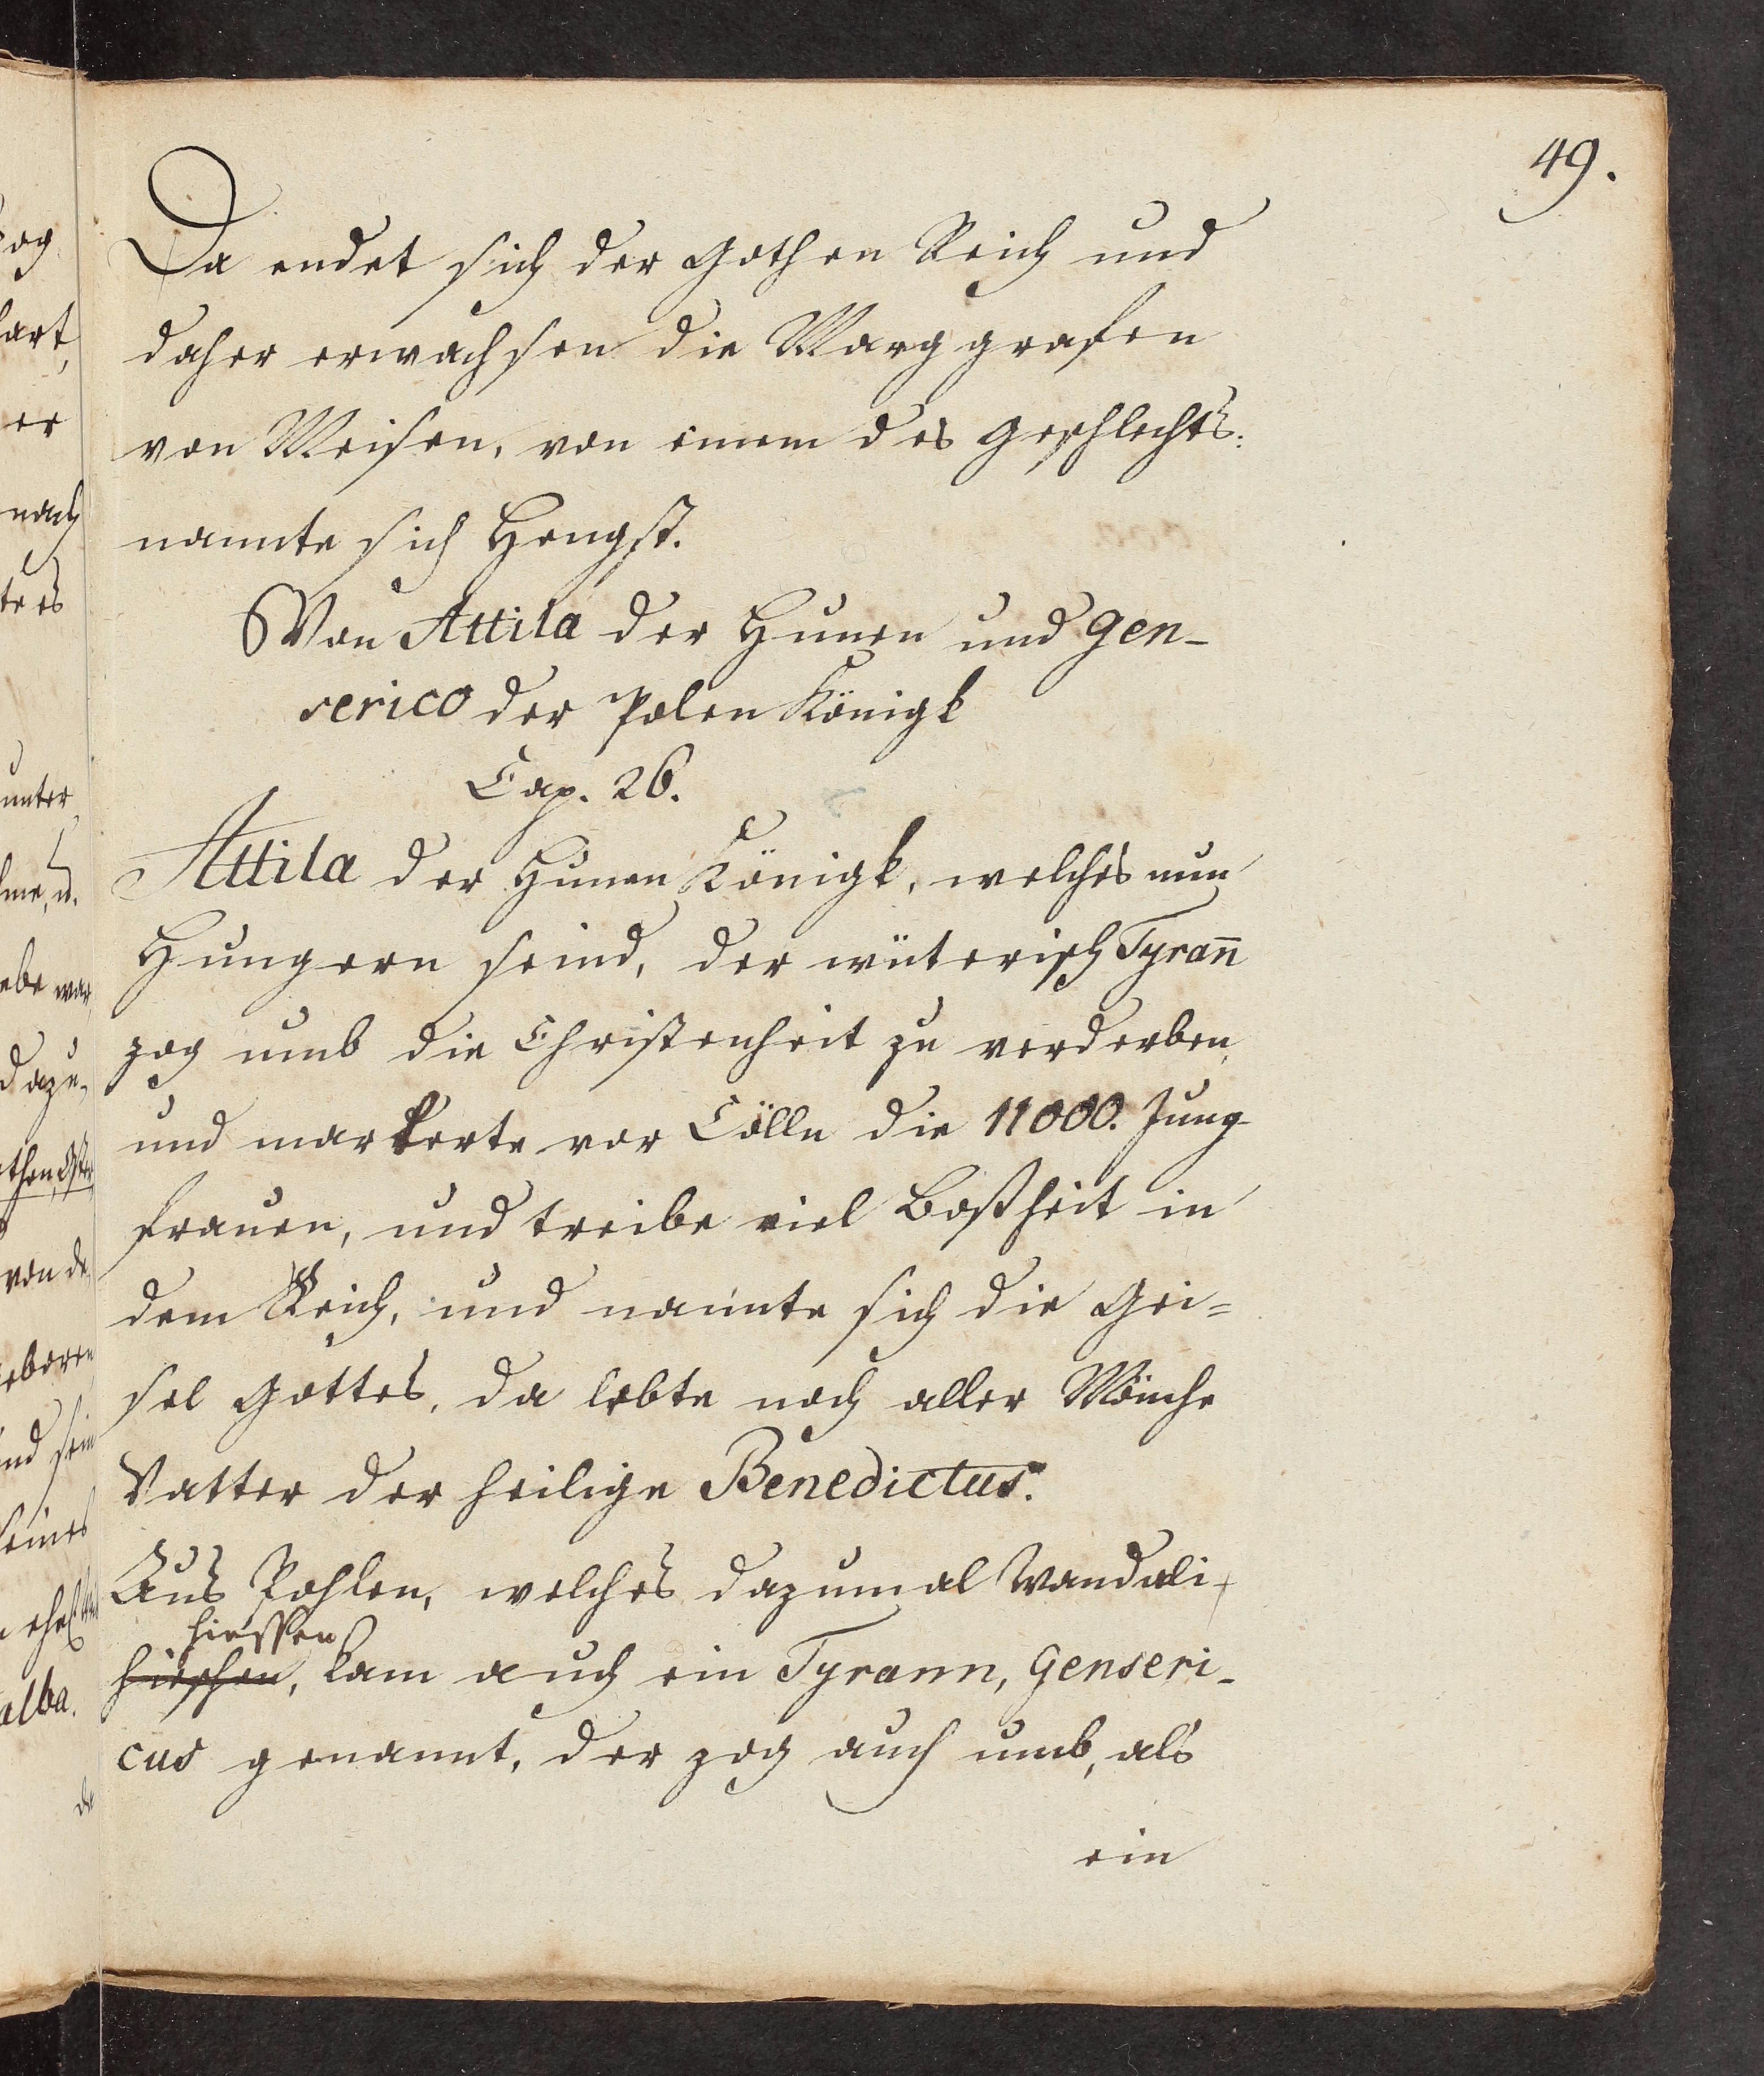 49.
Da endet sich der Gothen Reich und
daher erwachsen die Marggrafen
von Meisen, von einem des Geschlechts:
nannte sich Hengst.
Von Attila der Hunen und Gen-
serico der Polen Königk
Cap. 26.
Attila der Hunen Königk, welches nun
Hungern seind, der wüterisch Tyrañ
zog umb die Christenheit zu verderben,
und markerte vor Cölln die 11000. Jung
frauen, und treibe viel Boßheit in
dem Reich, und nannte sich die Gei=
sel Gottes, da lebte noch aller Mönche
Vatter der heilige Benedictus.
Aus Pohlen, welches dazumal Wandali-
hiessen
hieschen, kam auch ein Tyrann, Genseri-
cus genannt, der zog auch umb, als
ein
og
art,
er
nach
te es
unter
me, u.
ebe war
dazu
then, Oster
von de
eboren
nd sein
eines
alba.